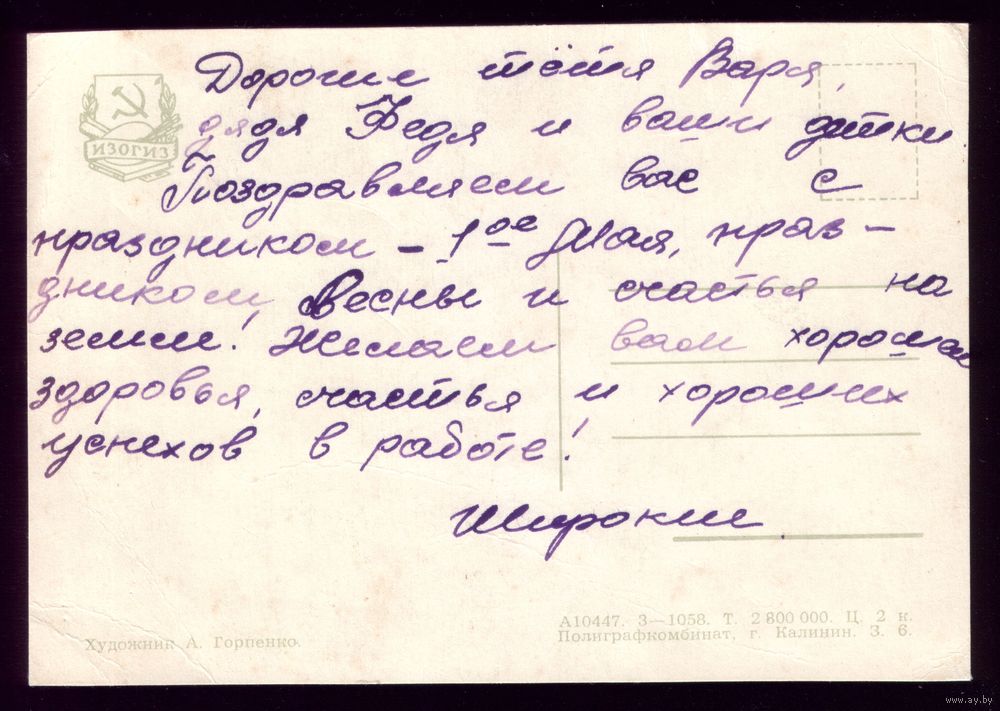 Дорогие тётя Варя,
дядя Федя и ваши детки.
Поздравляем вас с
праздником – 1ое Мая, праз-
дником, Весны и счастья на
земли! Желаем вам хорошего
здоровья, счастья и хороших
успехов в работе!
Широкие.
ИЗОГИЗ
Художник А. Горпенко.
А10447. 3—1058. Т. 2 800 000. Ц. 2 к.
Полиграфкомбинат, г. Калинин. З. 6.
www.ay.by